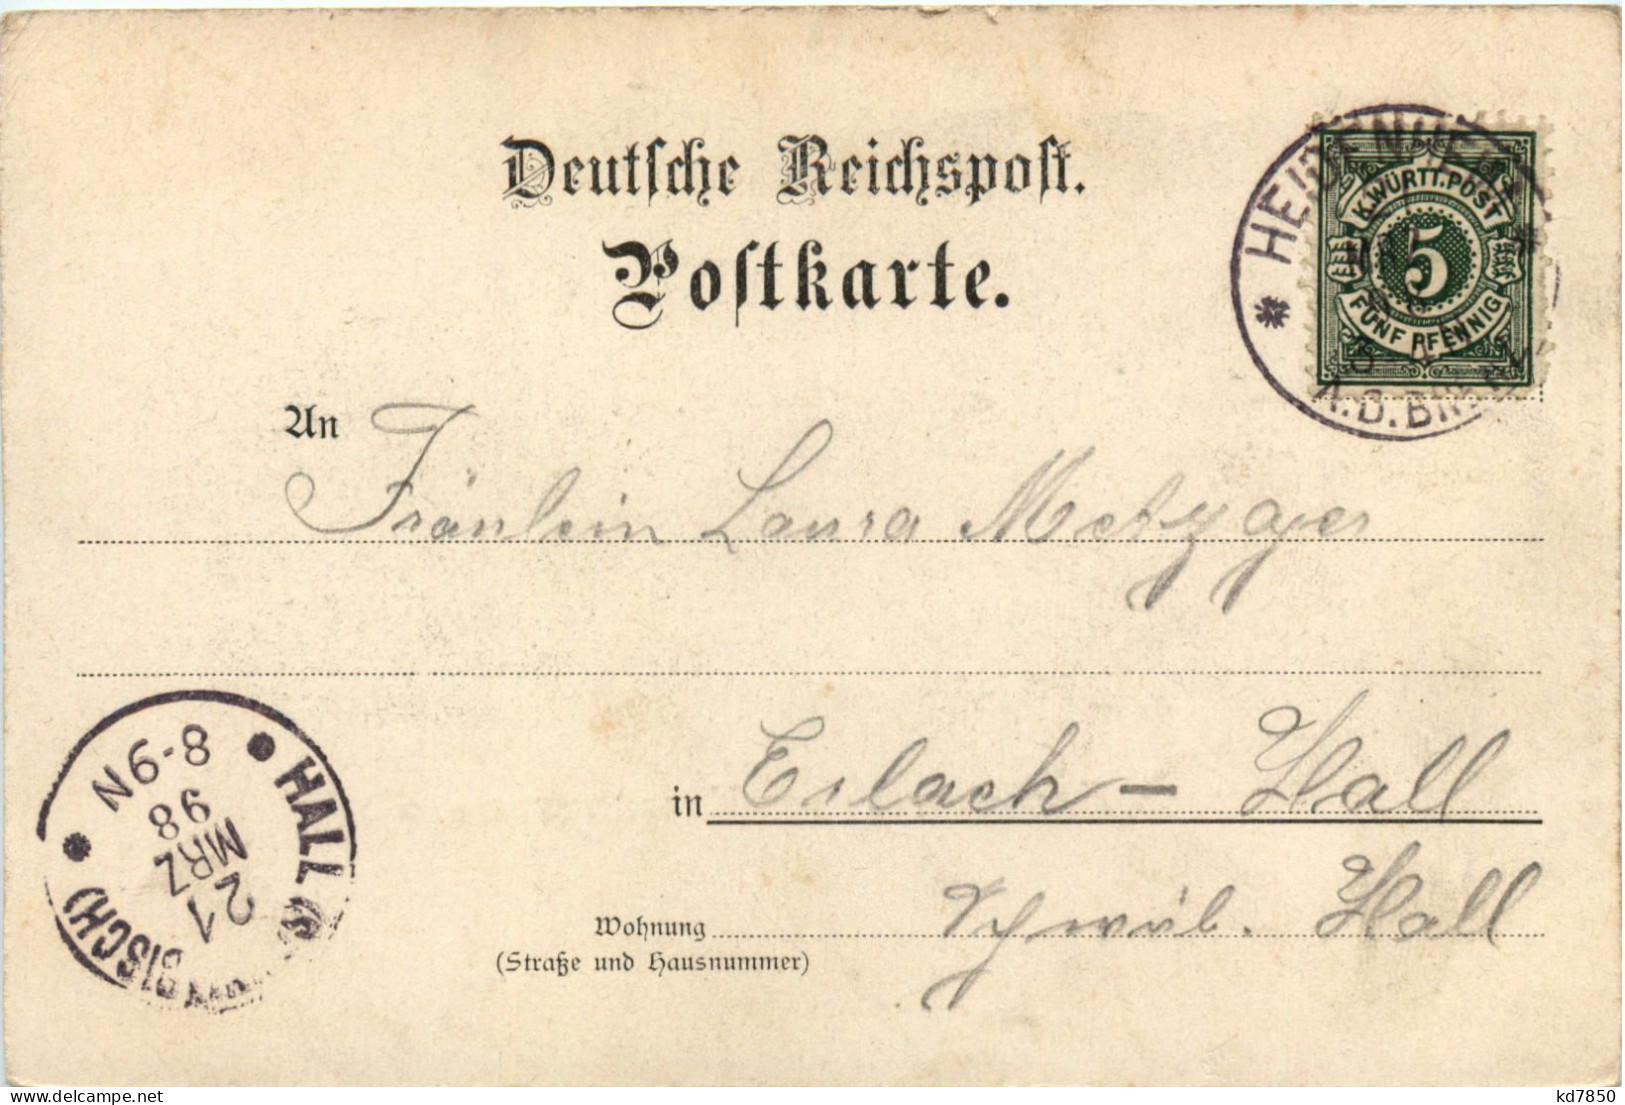 Deutsche Reichspost.
Postkarte.
K.WÜRTT.POST
5
FÜNF PFENNIG
An Fräulein Laura Metzger
in Erlach - Hall
Wohnung Schwäb. Hall
(Straße und Hausnummer)
HALL
21
MRZ
98
8-9N
kd7850